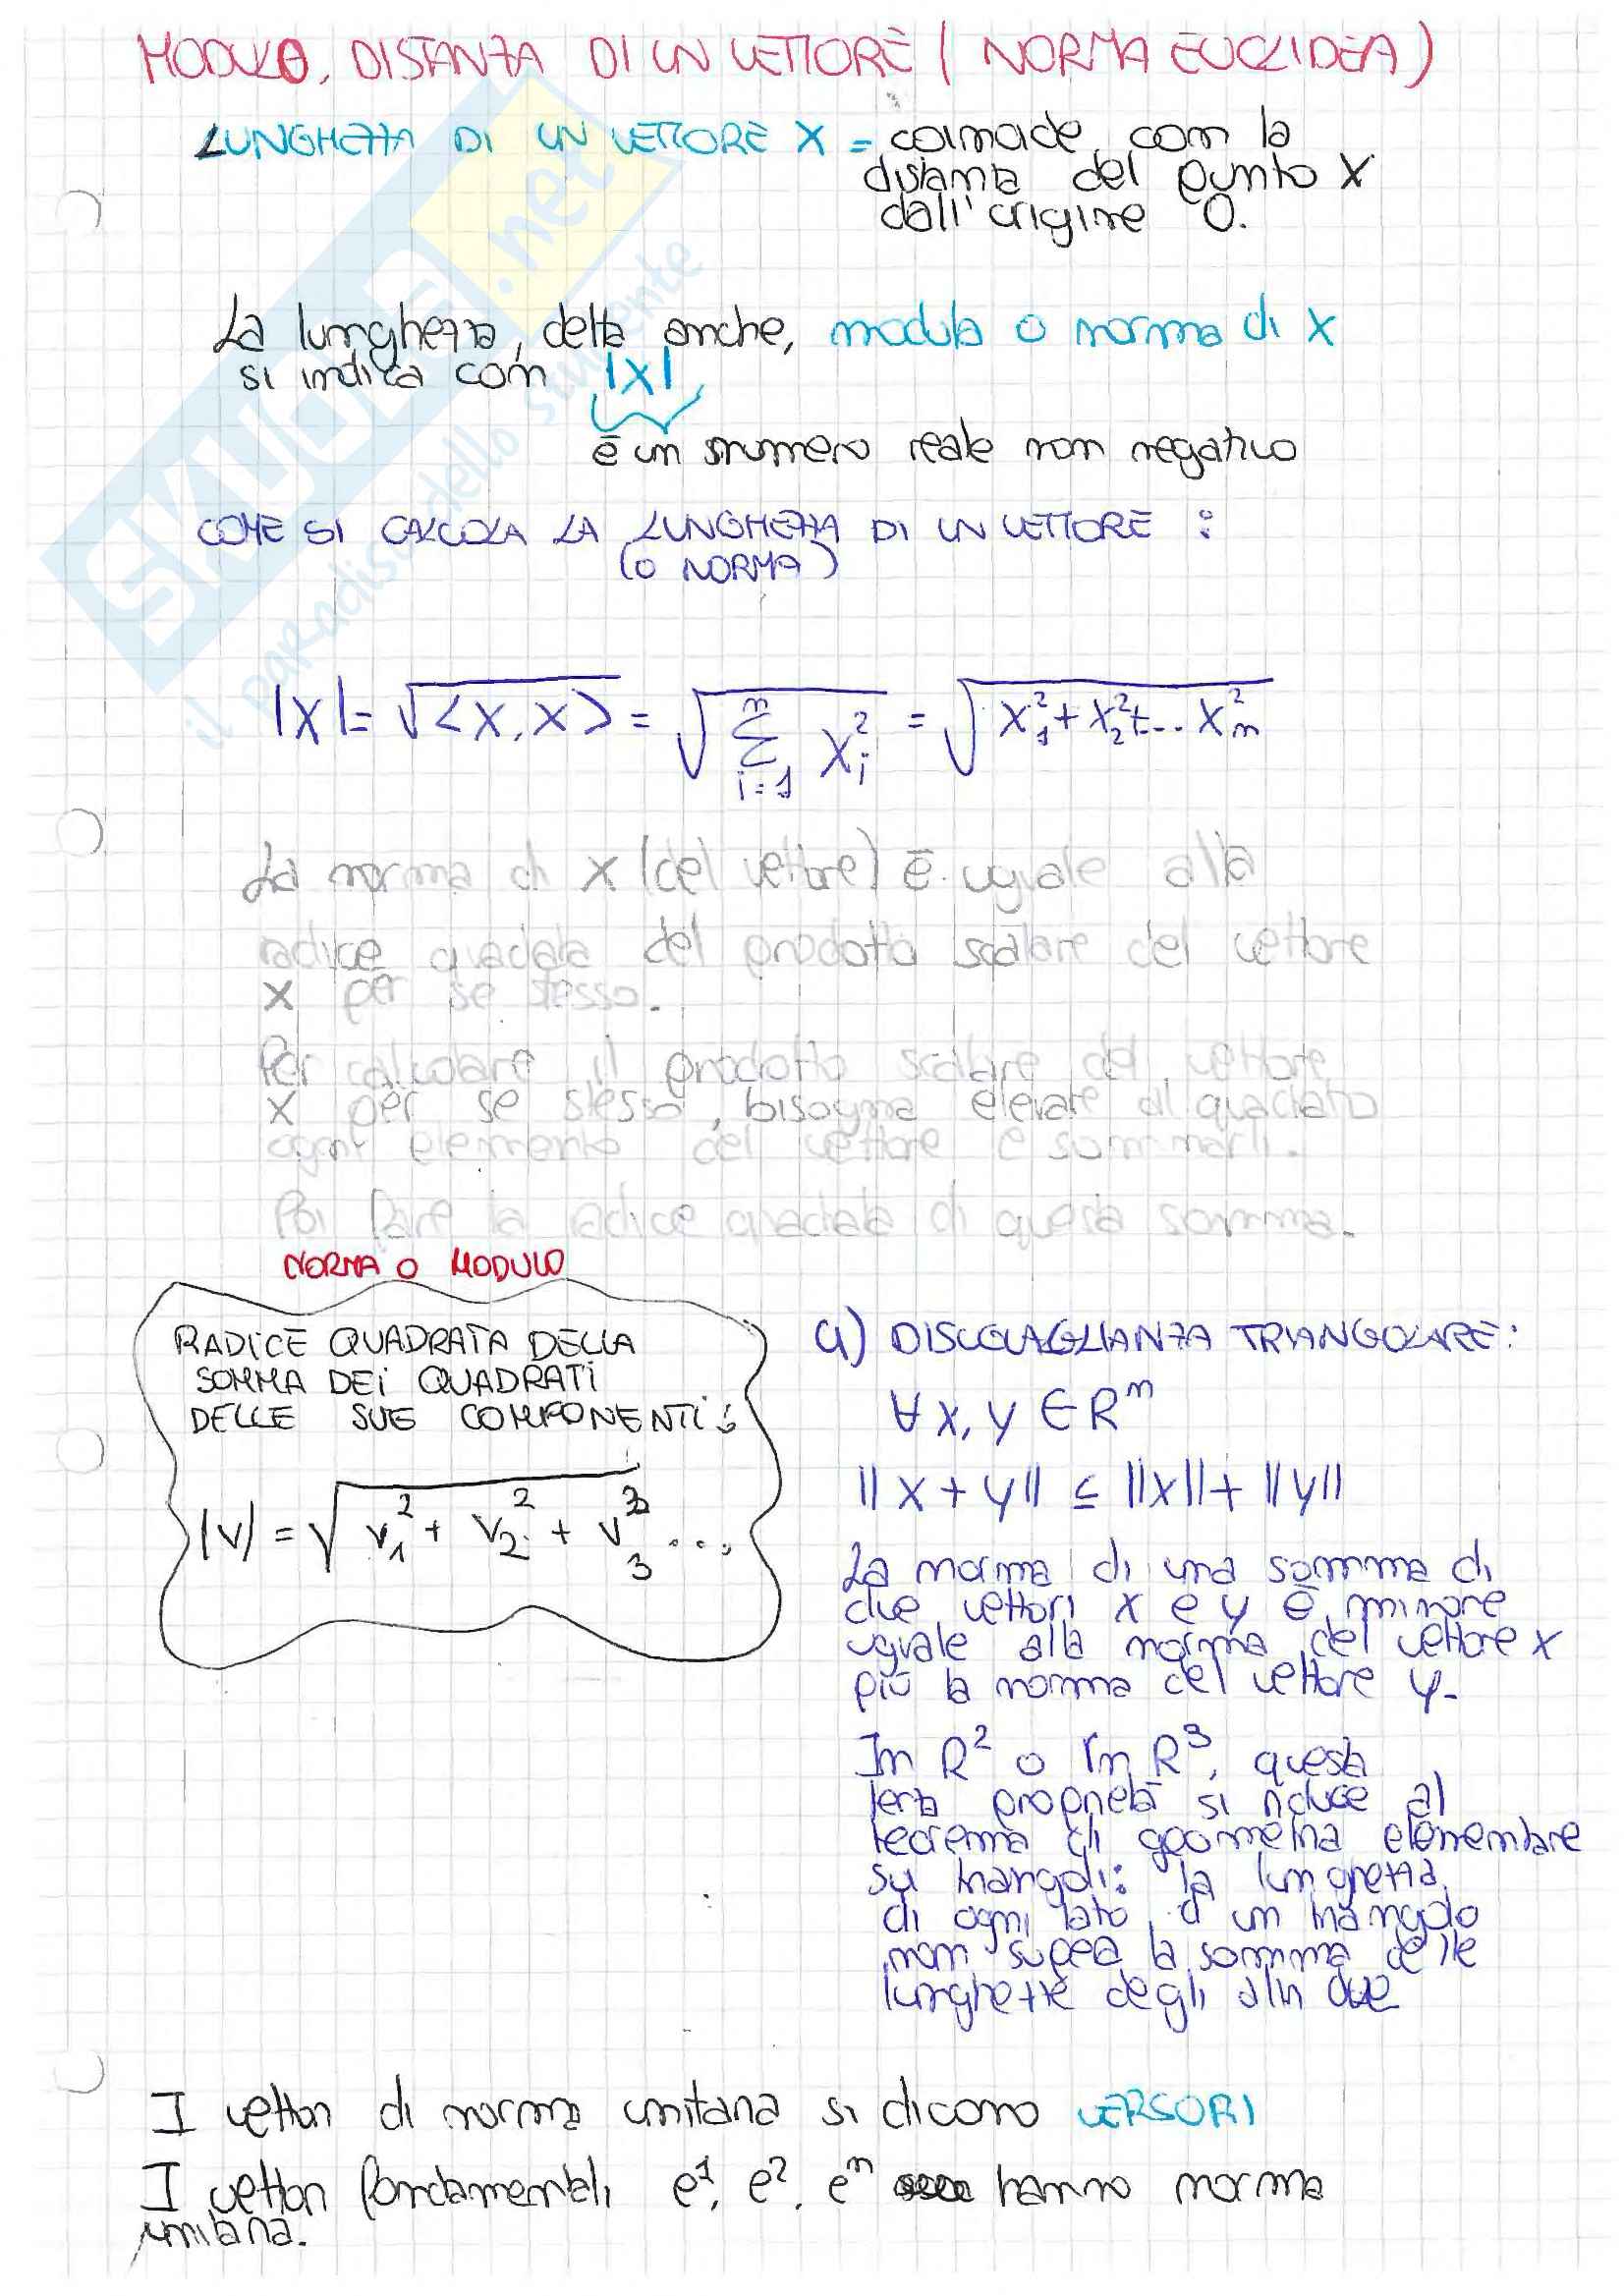 MODULO, DISTANZA DI UN VETTORE (NORMA EUCLIDEA)
LUNGHEZZA DI UN VETTORE X = coincide con la
distanza del punto X
dall'origine 0.
La lunghezza, detta anche, modulo o norma di X
si indica con |X|
è un numero reale non negativo
COME SI CALCOLA LA LUNGHEZZA DI UN VETTORE :
(O NORMA)
|X| = √<X, X> = √∑ᵢ₌₁ⁿ Xᵢ² = √X₁² + X₂² + ... Xₙ²
La norma di X (del vettore) è uguale alla
radice quadrata del prodotto scalare del vettore
X per se stesso.
Per calcolare il prodotto scalare del vettore
X per se stesso, bisogna elevare al quadrato
ogni elemento del vettore e sommarli.
Poi fare la radice quadrata di questa somma.
NORMA O MODULO
RADICE QUADRATA DELLA
SOMMA DEI QUADRATI
DELLE SUE COMPONENTI:
|V| = √V₁² + V₂² + V₃² ...
a) DISUGUAGLIANZA TRIANGOLARE:
∀ X, Y ∈ Rⁿ
||X + Y|| ≤ ||X|| + ||Y||
La norma di una somma di
due vettori X e Y è minore
uguale alla norma del vettore X
più la norma del vettore Y.
In R² o in R³, questa
terza proprietà si riduce al
teorema di geometria elementare
sui triangoli: la lunghezza
di ogni lato d'un triangolo
non supera la somma delle
lunghezze degli altri due
I vettori di norma unitaria si dicono VERSORI
I vettori fondamentali e¹, e², eⁿ hanno norma
unitaria.
SKUOLA.net
il paradiso dello studente